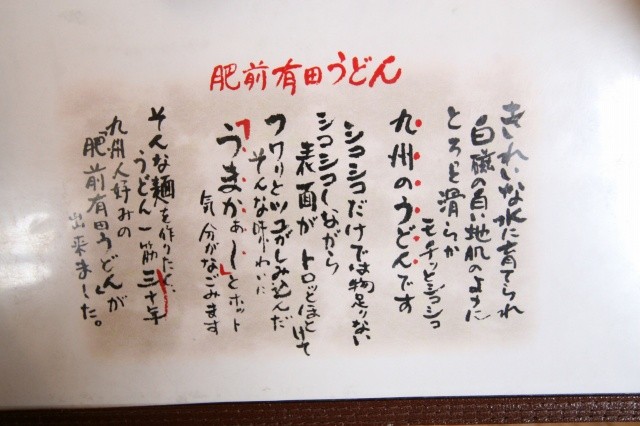 肥前有田うどん
きれいな水に育てられ
白磁の白い地肌のように
とろっと滑らか
モチッとシコシコ
九州のうどんです
シコシコだけでは物足りない
シコシコしながら
表面がトロッとほどけて
フワリとツユがしみ込んだ
そんな味わいに
「うまかぁ〜」とホット
気分がなごみます
そんな麺を作りたく、
うどん一筋三十年
九州人好みの
「肥前有田うどん」が
出来ました。